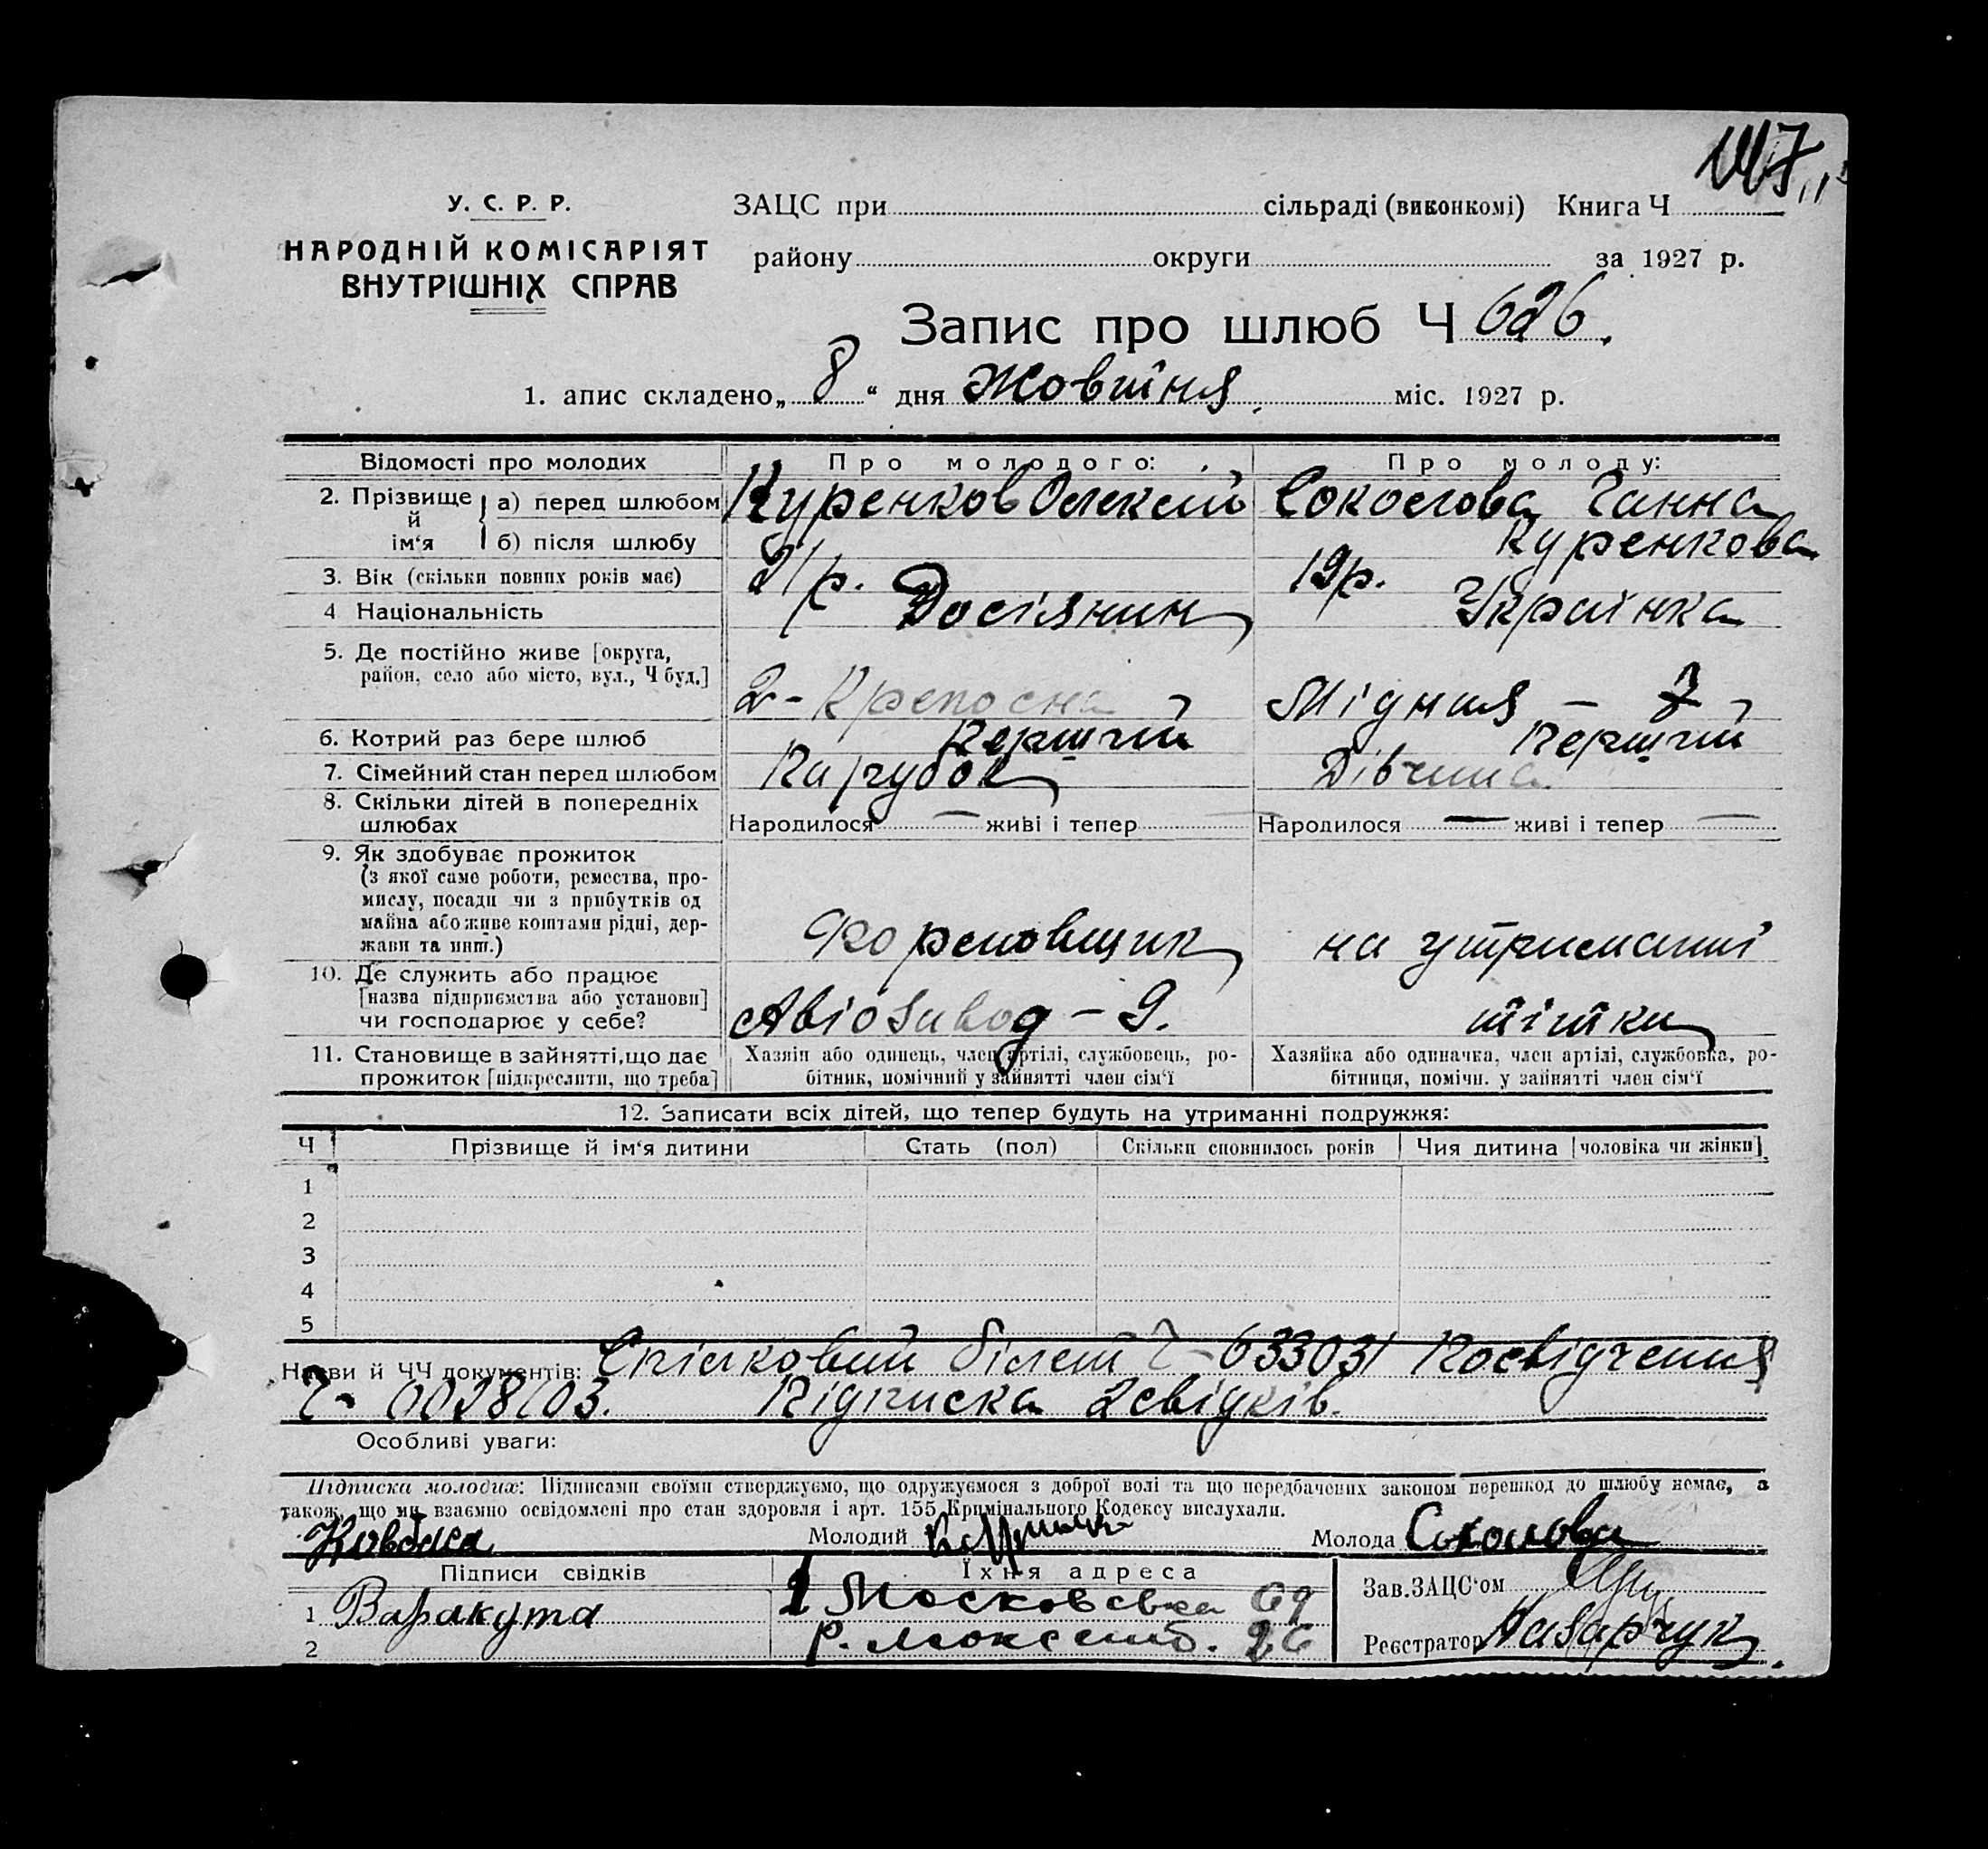 147
У. С. Р. Р.
НАРОДНІЙ КОМІСАРІЯТ
ВНУТРІШНІХ СПРАВ
ЗАЦС при сільраді (виконкомі) Книга Ч
району округи за 1927 р.
Запис про шлюб Ч 626.
1. апис складено „ 8 “ дня Жовтня міс. 1927 р.
Відомості про молодих Про молодого: Про молоду:
2. Прізвище й ім‘я а) перед шлюбом Куренков Олексій Соколова Ганна
б) після шлюбу Куренкова
3. Вік (скільки повних років має) 21 р. 19 р.
4 Національність Росіянин Українка
5. Де постійно живе [округа,
район, село або місто, вул., Ч буд.] 2 - Крепосна Мідна - 7
6. Котрий раз бере шлюб Перший Перший
7. Сімейний стан перед шлюбом Парубок Дівчина
8. Скільки дітей в попередніх
шлюбах Народилося — живі і тепер — Народилося — живі і тепер —
9. Як здобуває прожиток
(з якої саме роботи, ремества, про-
мислу, посади чи з прибутків од
майна або живе коштами рідні, дер-
жави та инш.) Формовщик на утриманні
10. Де служить або працює
[назва підприємства або установи]
чи господарює у себе? Авіозавод - 9. тітки
11. Становище в зайнятті, що дає Хазяїн або одинець, член артілі, службовець, ро- Хазяйка або одиначка, член артілі, службовка, ро-
прожиток [підкреслити, що треба] бітник, помічний у зайнятті член сім‘ї бітниця, помічн. у зайнятті член сім‘ї
12. Записати всіх дітей, що тепер будуть на утриманні подружжя:
Ч Прізвище й ім‘я дитини Стать (пол) Скільки сповнилось років Чия дитина [чоловіка чи жінки]
1
2
3
4
5
Назви й ЧЧ документів: Спілковий білет Ч - 633031 Посвідчення
Ч - Підписка 2 свідків.
Особливі уваги:
Підписка молодих: Підписами своїми стверджуємо, що одружуємося з доброї волі та що передбачених законом перешкод до шлюбу немає, а
також, що ми взаємно освідомлені про стан здоровля і арт. 155 Кримінального Кодексу вислухали.
Ковбаса Молодий Молода Соколова
Підписи свідків Їхня адреса Зав. ЗАЦС‘ом
1 Варакута 1 Московська 69
2 Реєстратор Назарчук